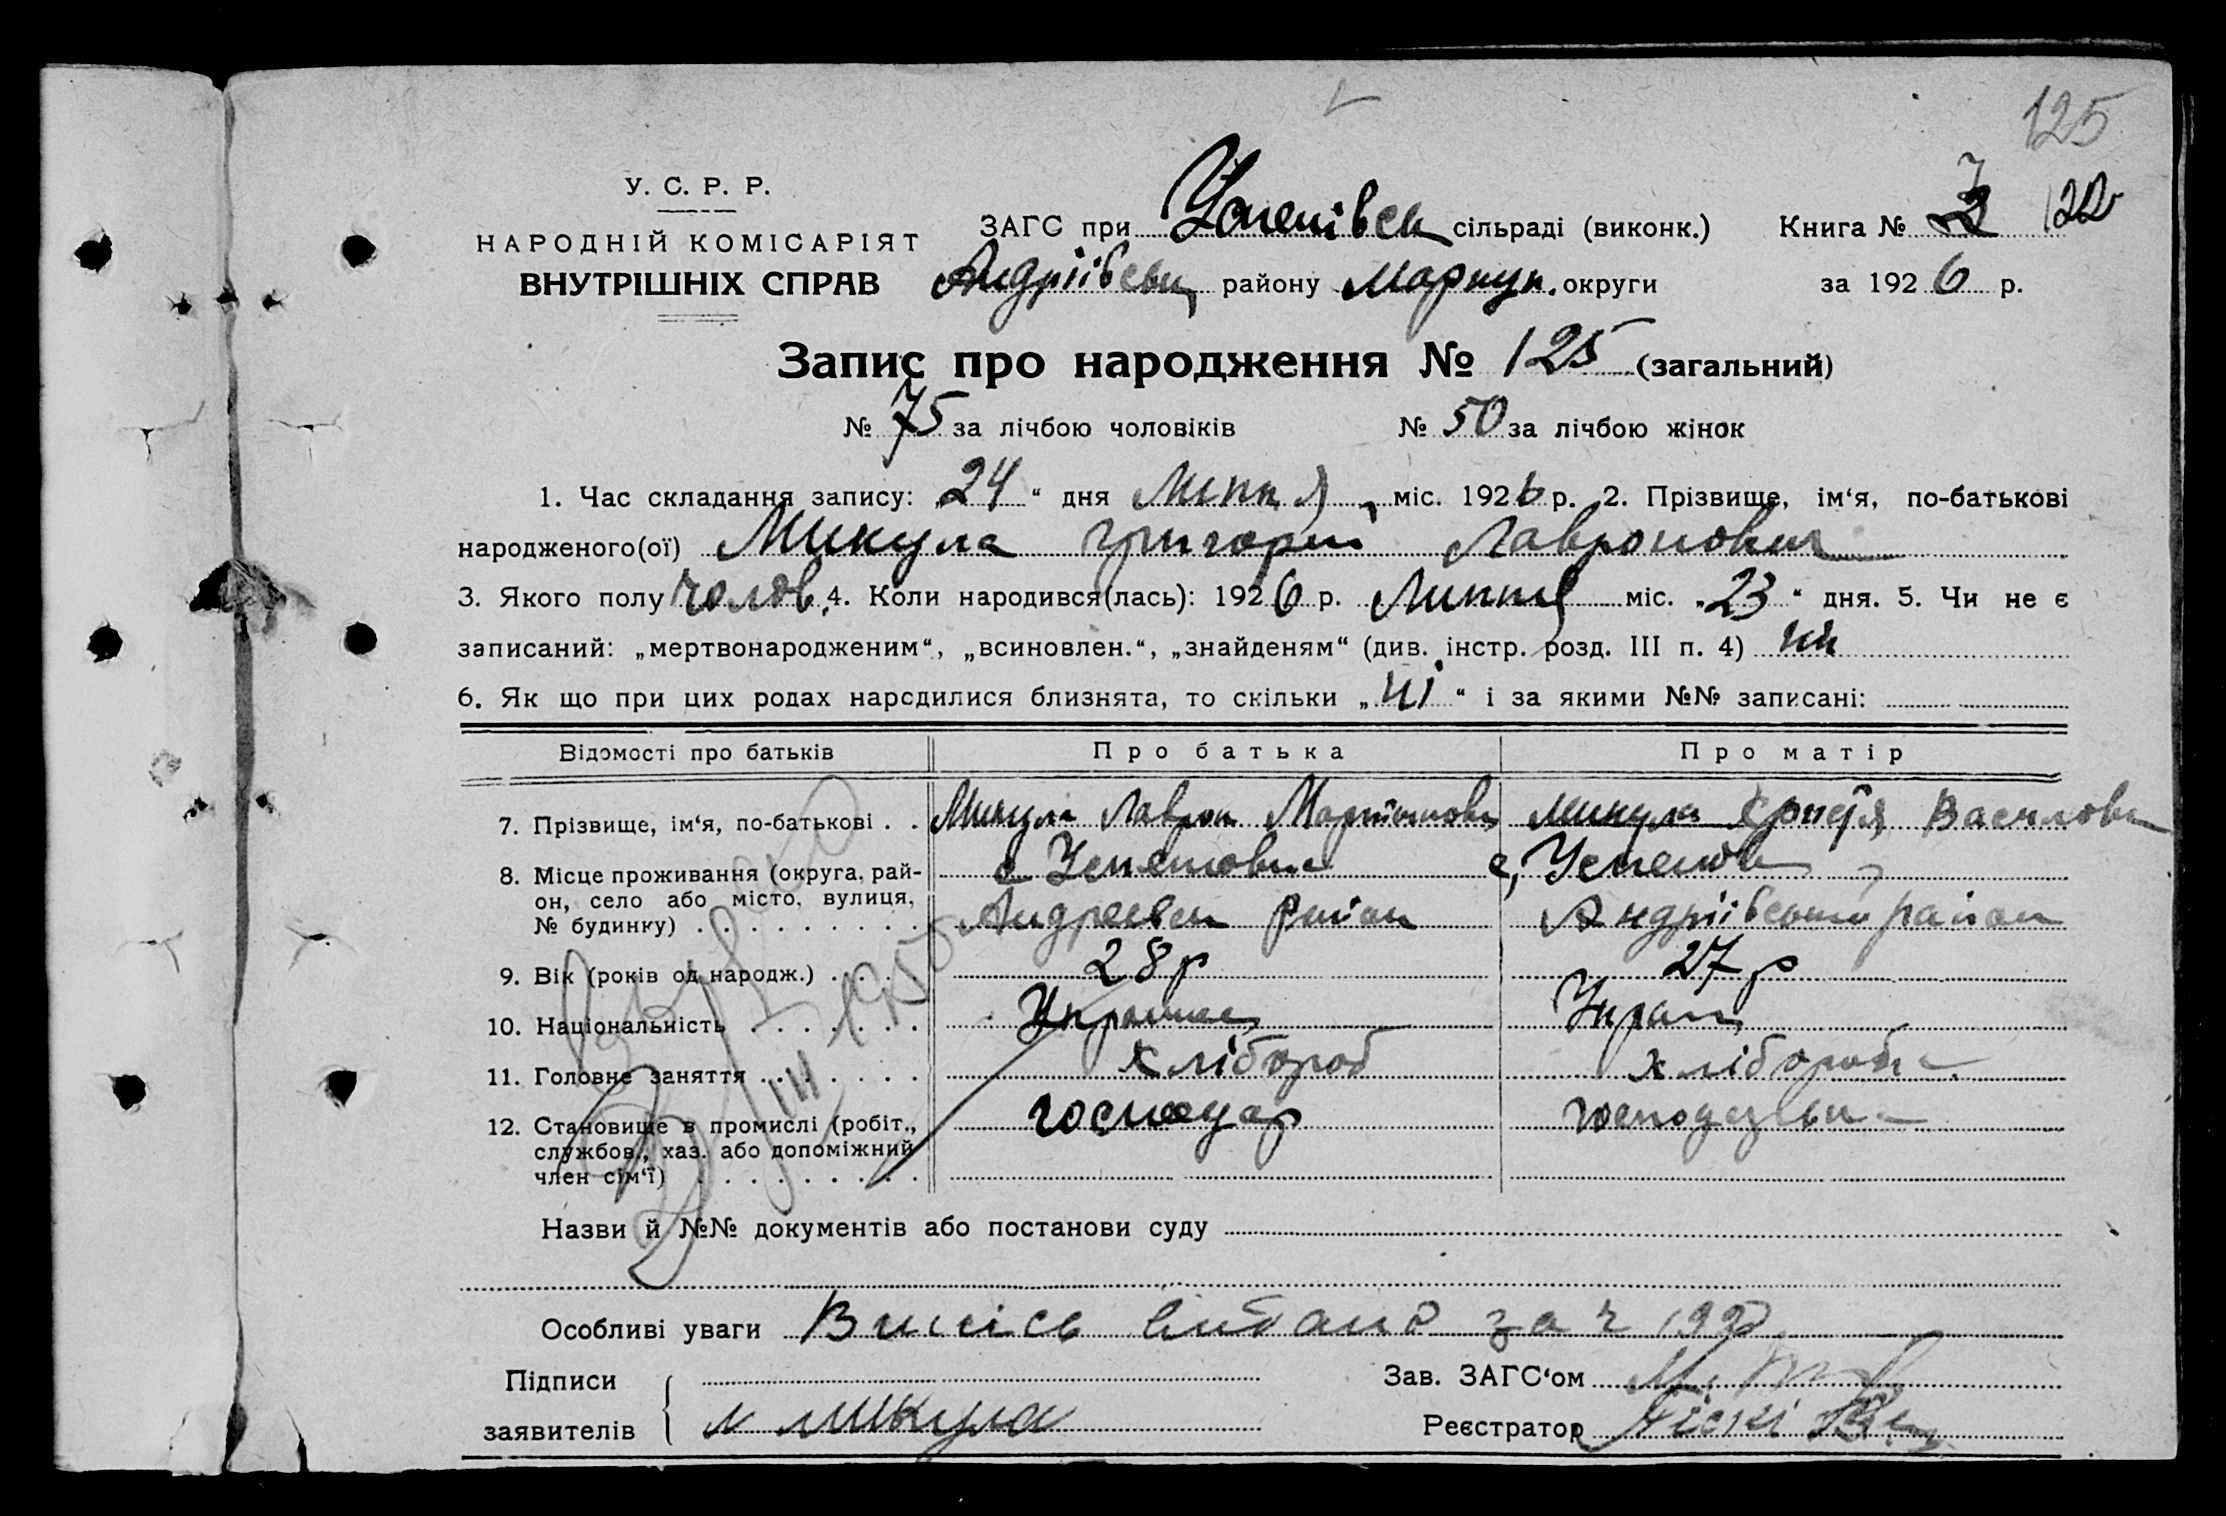 125
У. С. Р. Р.
НАРОДНІЙ КОМІСАРІЯТ
ВНУТРІШНІХ СПРАВ
ЗАГС при Успенівськ сільраді (виконк.) Книга № 122
Андріївськ району Маріуп. округи за 1926 р.
Запис про народження № 125 (загальний)
№ 75 за лічбою чоловіків № 50 за лічбою жінок
1. Час складання запису: „24“ дня Липня міс. 1926 р. 2. Прізвище, ім‘я, по-батькові
народженого(ої) Микула Григорий Лавронович
3. Якого полу чолов. 4. Коли народився(лась): 1926 р. Липня міс. „23“ дня. 5. Чи не є
записаний: „мертвонародженим“, „всиновлен.“, „знайденям“ (див. інстр. розд. III п. 4) ні
6. Як що при цих родах народилися близнята, то скільки „ні“ і за якими №№ записані:
Відомості про батьків Про батька Про матір
7. Прізвище, ім‘я, по-батькові . . Микула Лаврон Микула Василовн
8. Місце проживання (округа, рай-
он, село або місто, вулиця,
№ будинку) . . . . . . . . .
с Успеновка с, Успенов
Андреевск район Андріївський район
9. Вік (років од народж.) . . . . 28 р 27 р
10. Національність . . . . . . . Украинец Украп
11. Головне заняття . . . . . . . хлібороб хлібороб
12. Становище в промислі (робіт.,
службов., хаз. або допоміжний
член сім‘ї) . . . . . . . . .
господар
III 1950
Назви й №№ документів або постанови суду
Особливі уваги Випісь видана
Підписи
заявителів
М Микула
Зав. ЗАГС‘ом
Реєстратор